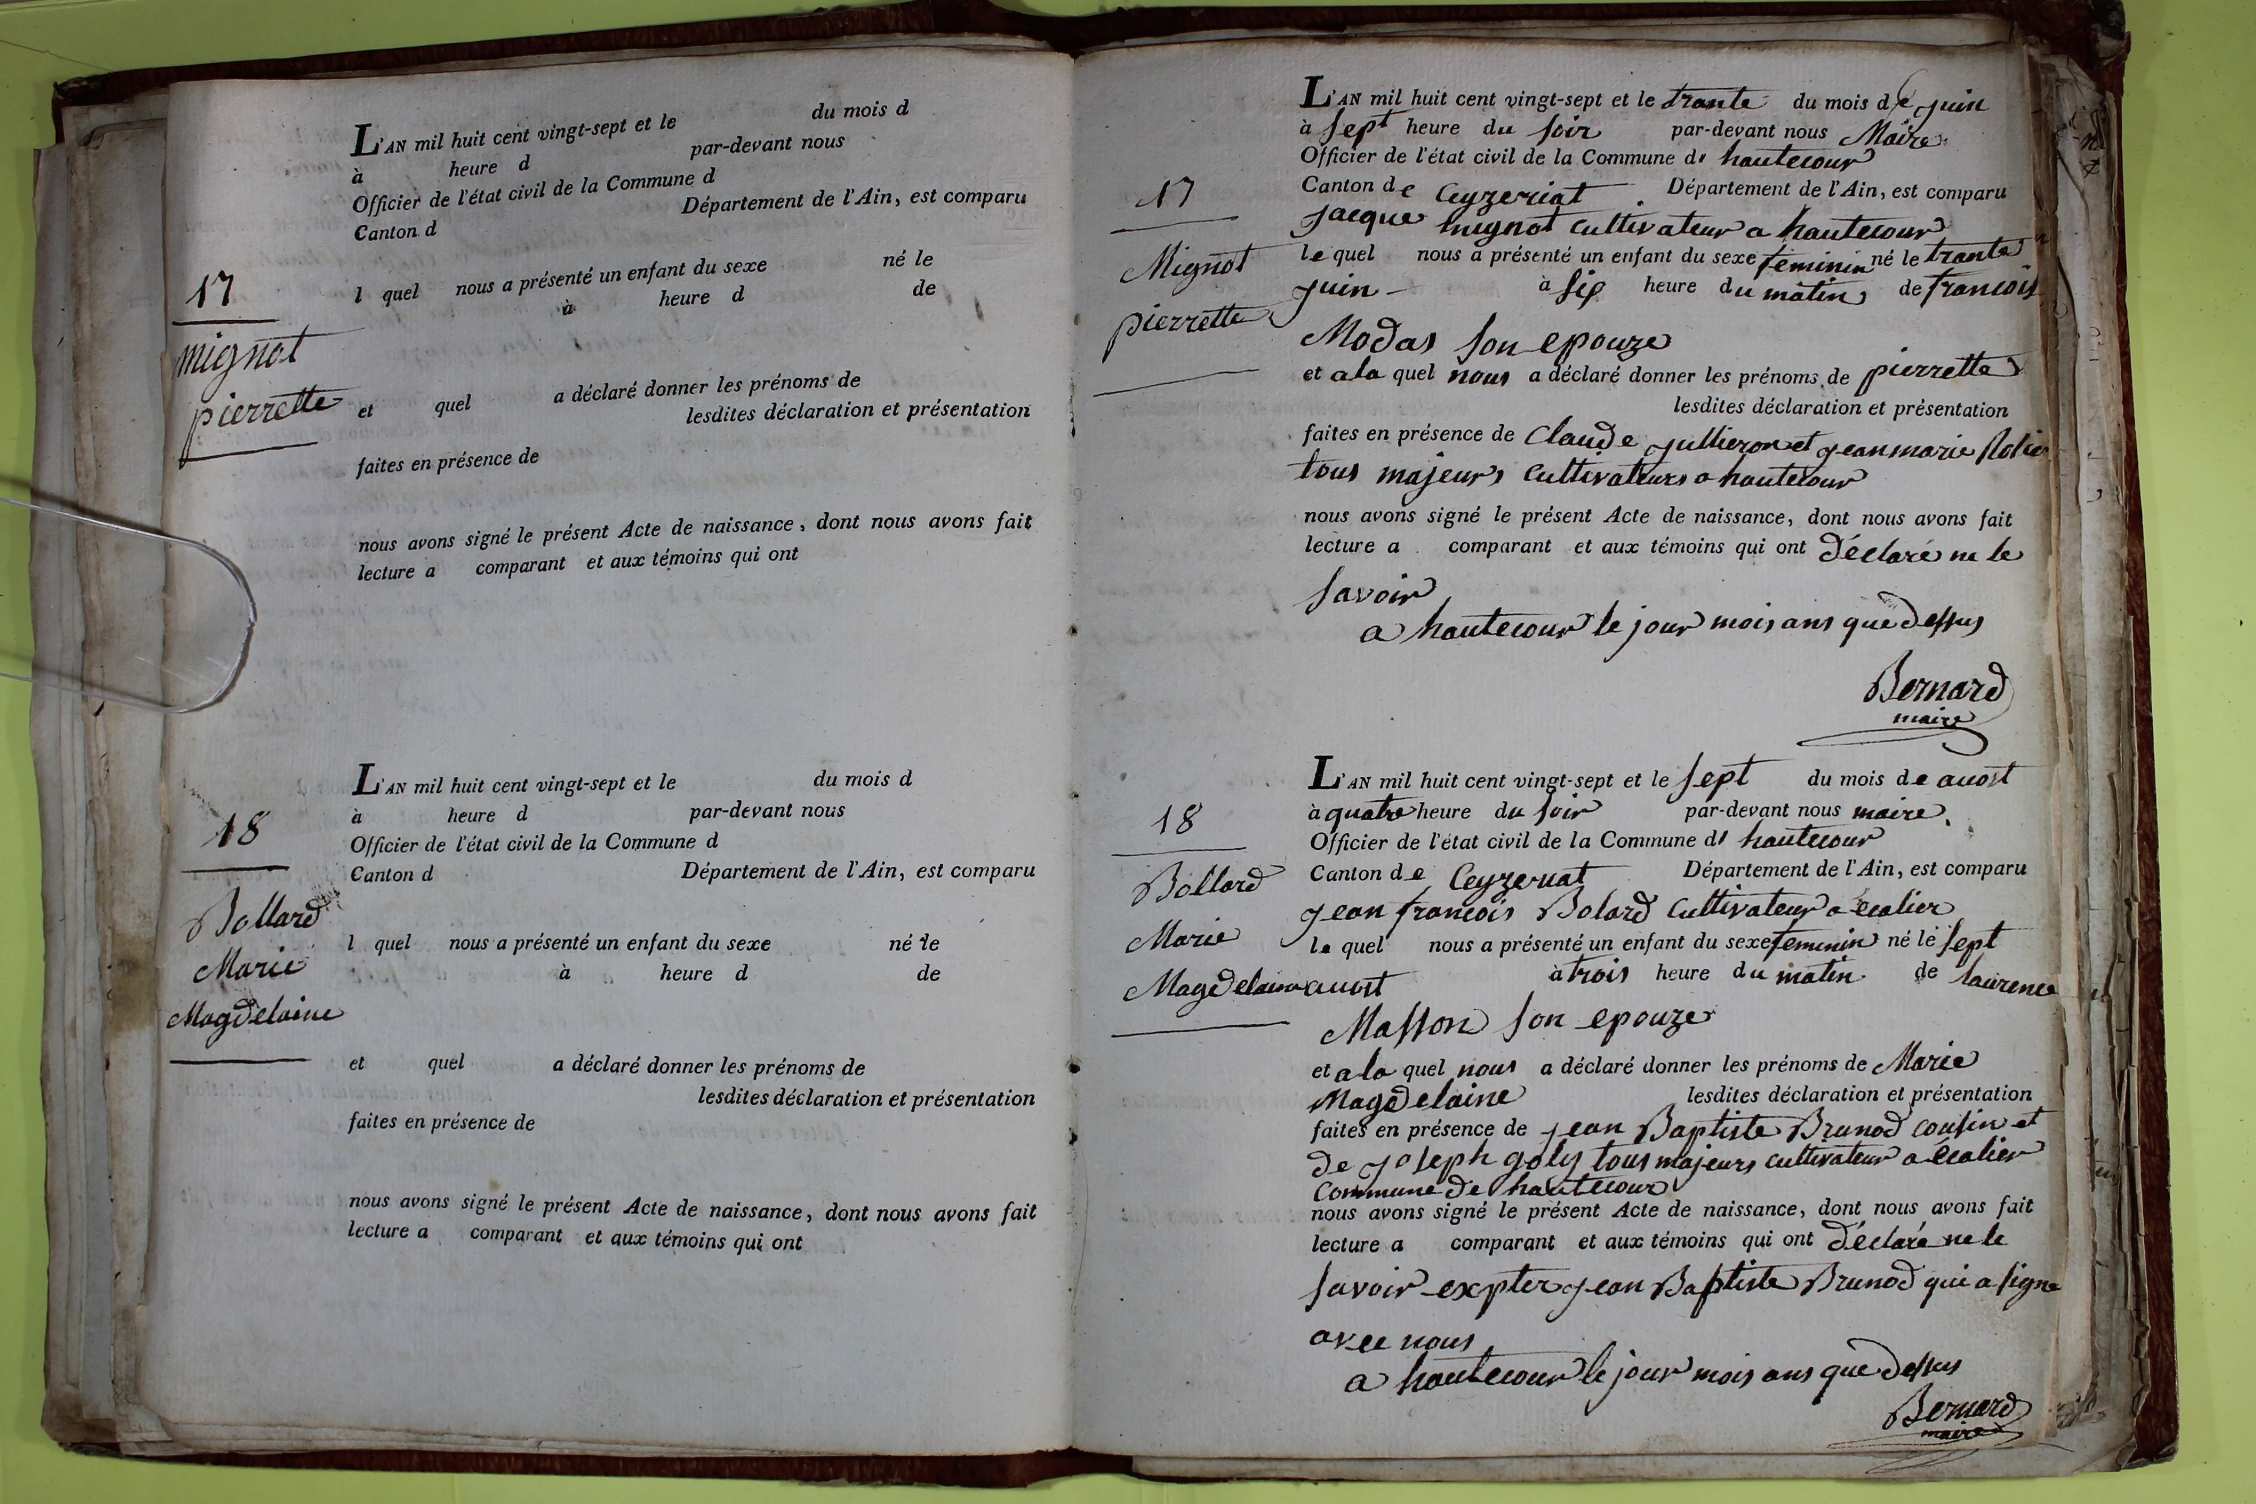 L'AN mil huit cent vingt-sept et le du mois d
à heure d par-devant nous
Officier de l'état civil de la Commune d
Canton d Département de l'Ain, est comparu
17
l quel nous a présenté un enfant du sexe né le
à heure d de
mignot
pierrette
et quel a déclaré donner les prénoms de
lesdites déclaration et présentation
faites en présence de
nous avons signé le présent Acte de naissance, dont nous avons fait
lecture a comparant et aux témoins qui ont
L'AN mil huit cent vingt-sept et le du mois d
à heure d par-devant nous
Officier de l'état civil de la Commune d
Canton d Département de l'Ain, est comparu
18
Bollard
Marie
Magdelaine
l quel nous a présenté un enfant du sexe né le
à heure d de
et quel a déclaré donner les prénoms de
lesdites déclaration et présentation
faites en présence de
nous avons signé le présent Acte de naissance, dont nous avons fait
lecture a comparant et aux témoins qui ont
L'AN mil huit cent vingt-sept et le trante du mois de juin
à sept heure du soir par-devant nous Maire
Officier de l'état civil de la Commune de hautecour
Canton de Ceyzeriat Département de l'Ain, est comparu
17
Mignot
pierrette
jacque mignot cultivateur a hautecour
le quel nous a présenté un enfant du sexe feminin né le trante
juin à six heure du matin de francois
Modas son epouze
et a la quel nous a déclaré donner les prénoms de pierrette
lesdites déclaration et présentation
faites en présence de Claude jullieron et jean marie
tous majeurs cultivateurs a hautecour
nous avons signé le présent Acte de naissance, dont nous avons fait
lecture a comparant et aux témoins qui ont déclaré ne le
savoir
a hautecour le jour mois ans que dessus
Bernard
maire
L'AN mil huit cent vingt-sept et le sept du mois de auost
à quatre heure du soir par-devant nous maire
Officier de l'état civil de la Commune de hautecour
Canton de Ceyzeriat Département de l'Ain, est comparu
18
Bollard
Marie
Magdelaine
jean francois Bolard cultivateur a ecalier
le quel nous a présenté un enfant du sexe feminin né le sept
auost à trois heure du matin de laurence
Masson son epouze
et a la quel nous a déclaré donner les prénoms de Marie
Magdelaine lesdites déclaration et présentation
faites en présence de jean Baptiste Brunod cousin et
de joseph goly tous majeurs cultivateur a écalier
Commune de hautecour
nous avons signé le présent Acte de naissance, dont nous avons fait
lecture a comparant et aux témoins qui ont déclaré ne le
savoir expter jean Baptiste Brunod qui a signe
avec nous
a hautecour le jour mois ans que dessus
Bernard
maire